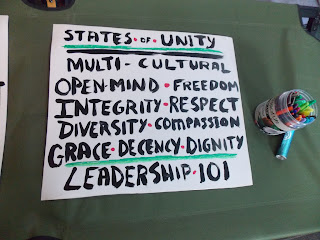 STATES • OF • UNITY
MULTI - CULTURAL
OPEN-MIND • FREEDOM
INTEGRITY • RESPECT
DIVERSITY • COMPASSION
GRACE • DECENCY • DIGNITY
LEADERSHIP • 101